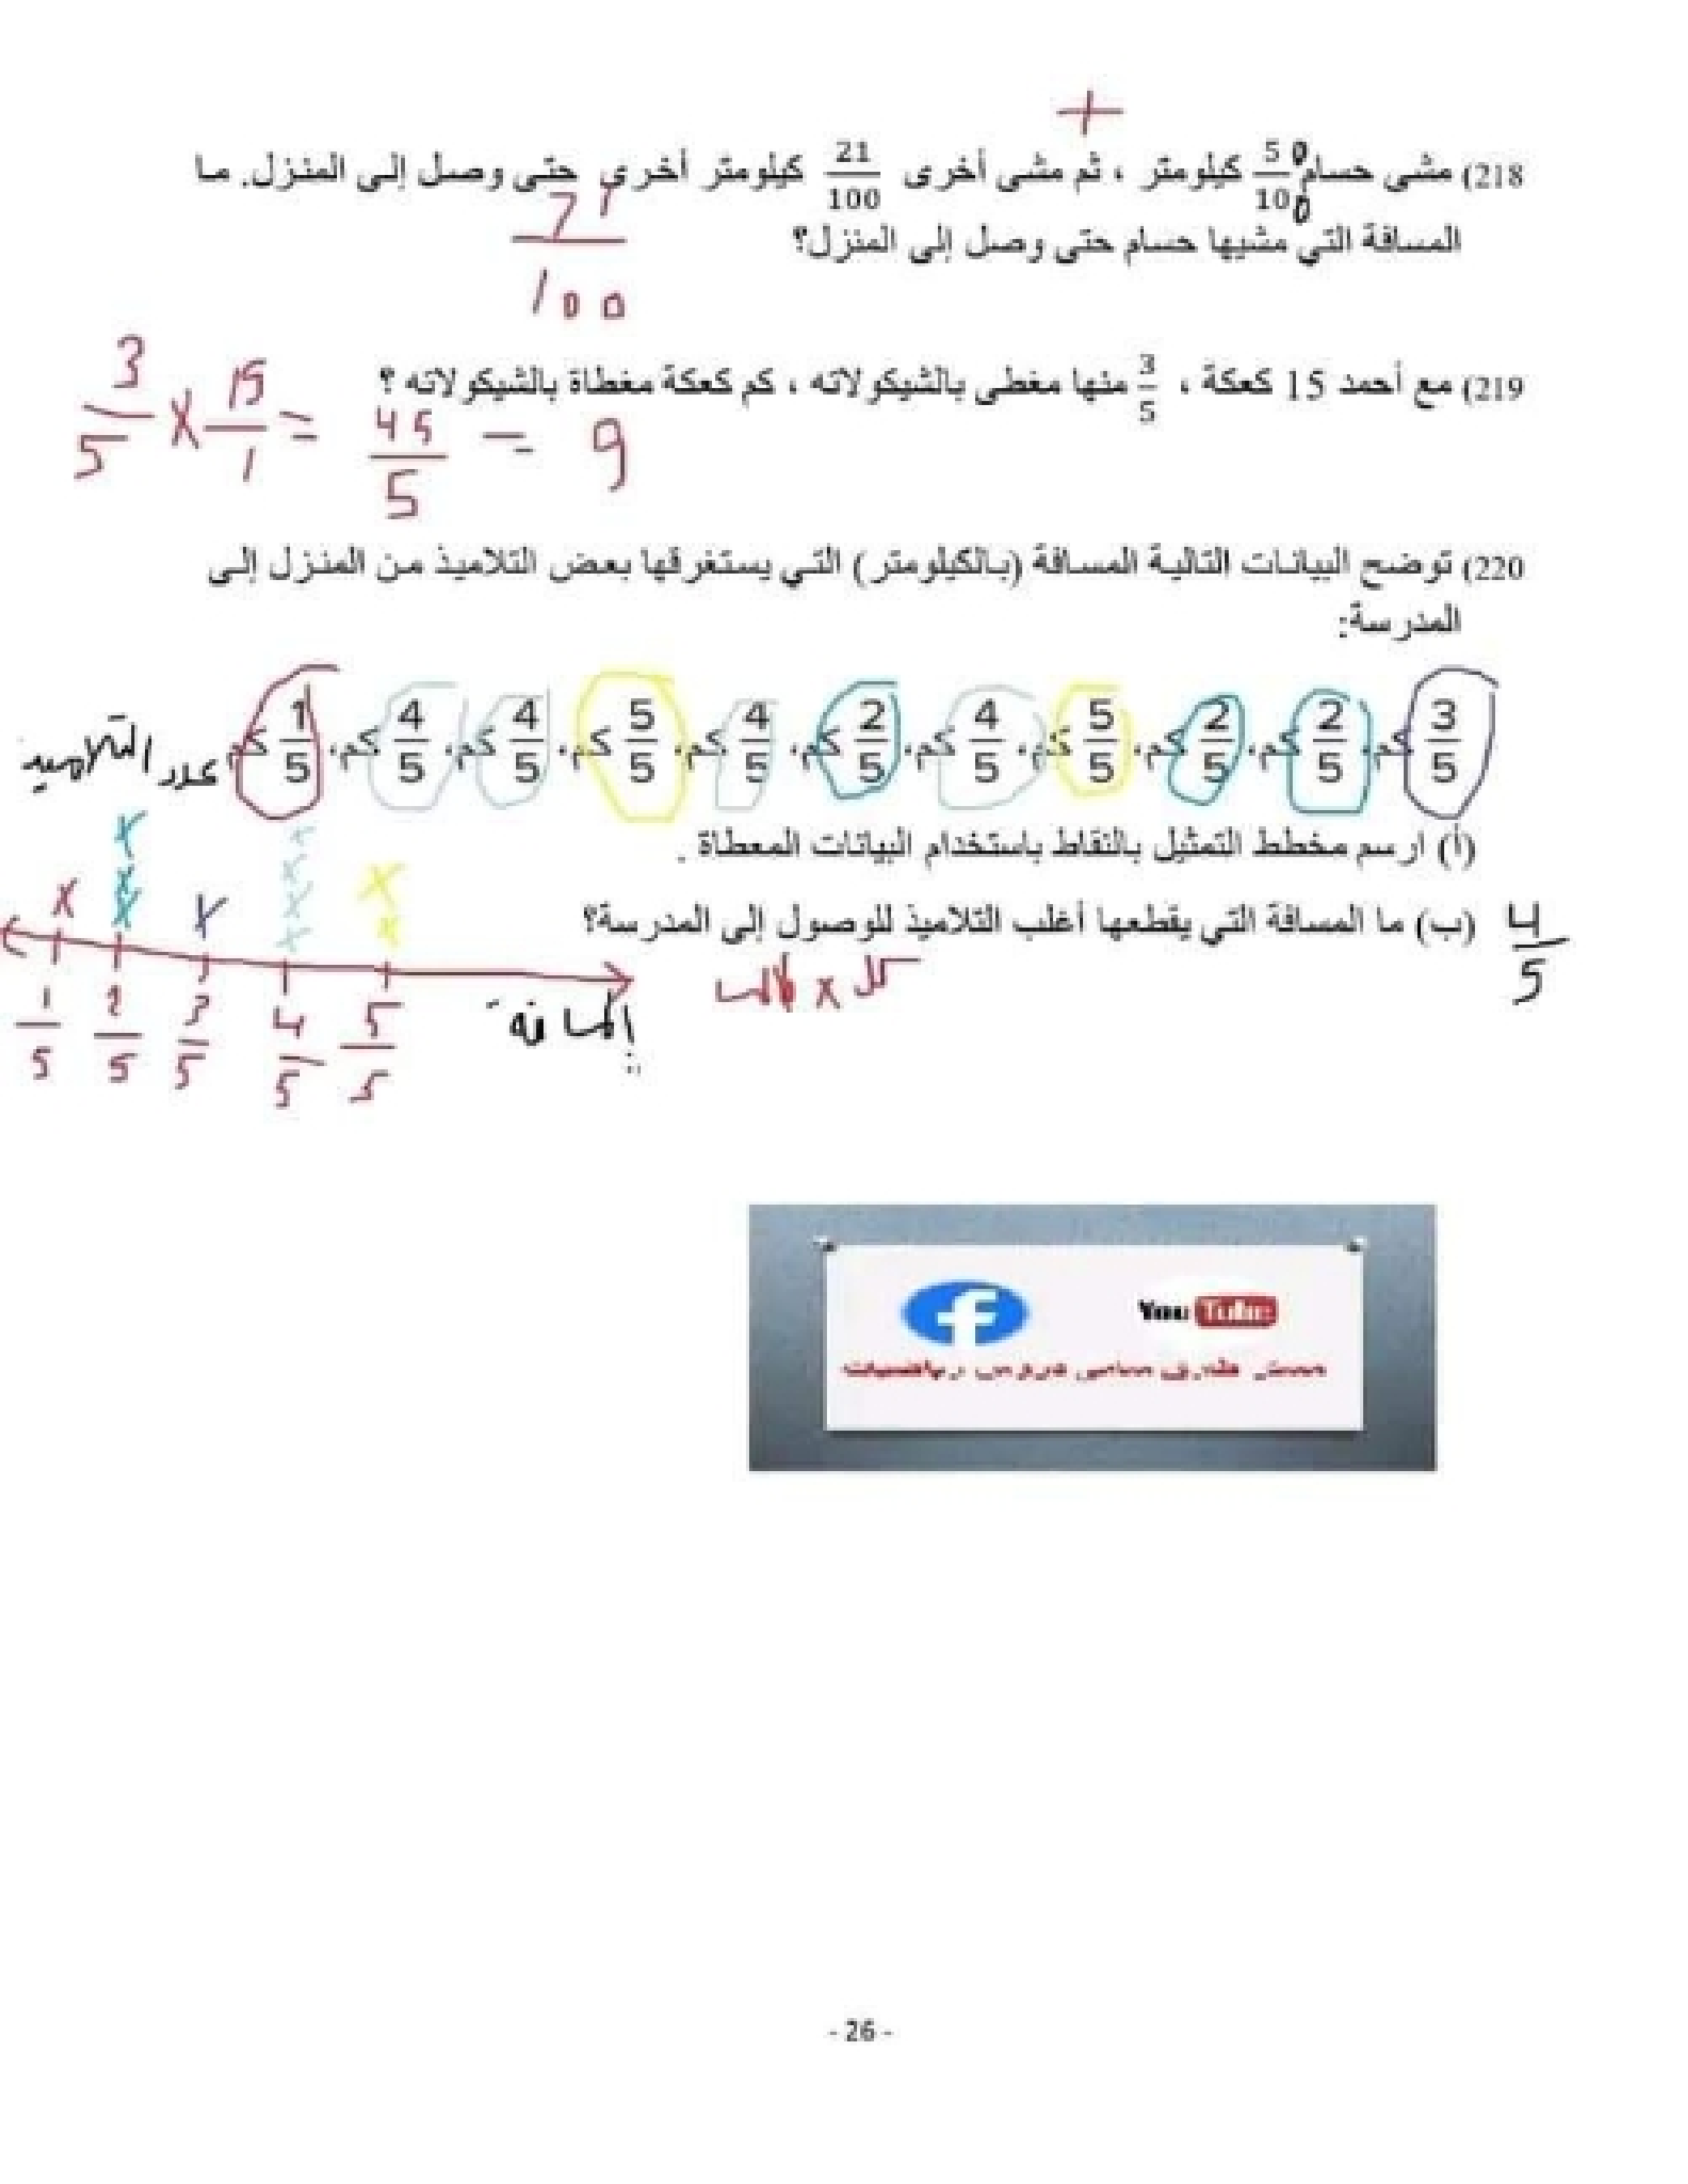 +
218) مشى حسام 50/100 كيلومتر ، ثم مشى أخرى 21/100 كيلومتر أخرى حتى وصل إلى المنزل. ما
المسافة التي مشيها حسام حتى وصل إلى المنزل؟
71/100
219) مع أحمد 15 كعكة ، 3/5 منها مغطى بالشيكولاته ، كم كعكة مغطاة بالشيكولاته ؟
3/5 × 15/1 = 45/5 = 9
220) توضح البيانات التالية المسافة (بالكيلومتر) التي يستغرقها بعض التلاميذ من المنزل إلى
المدرسة:
3/5 كم، 2/5 كم، 2/5 كم، 5/5 كم، 4/5 كم، 2/5 كم، 4/5 كم، 5/5 كم، 4/5 كم، 4/5 كم، 1/5 كم
عدد التلاميذ
(أ) ارسم مخطط التمثيل بالنقاط باستخدام البيانات المعطاة .
x x x x x x x x x x x
(ب) ما المسافة التي يقطعها أغلب التلاميذ للوصول إلى المدرسة؟ 4/5
1/5 2/5 3/5 4/5 5/5
المسافة
كل x طالب
f You Tube
- 26 -